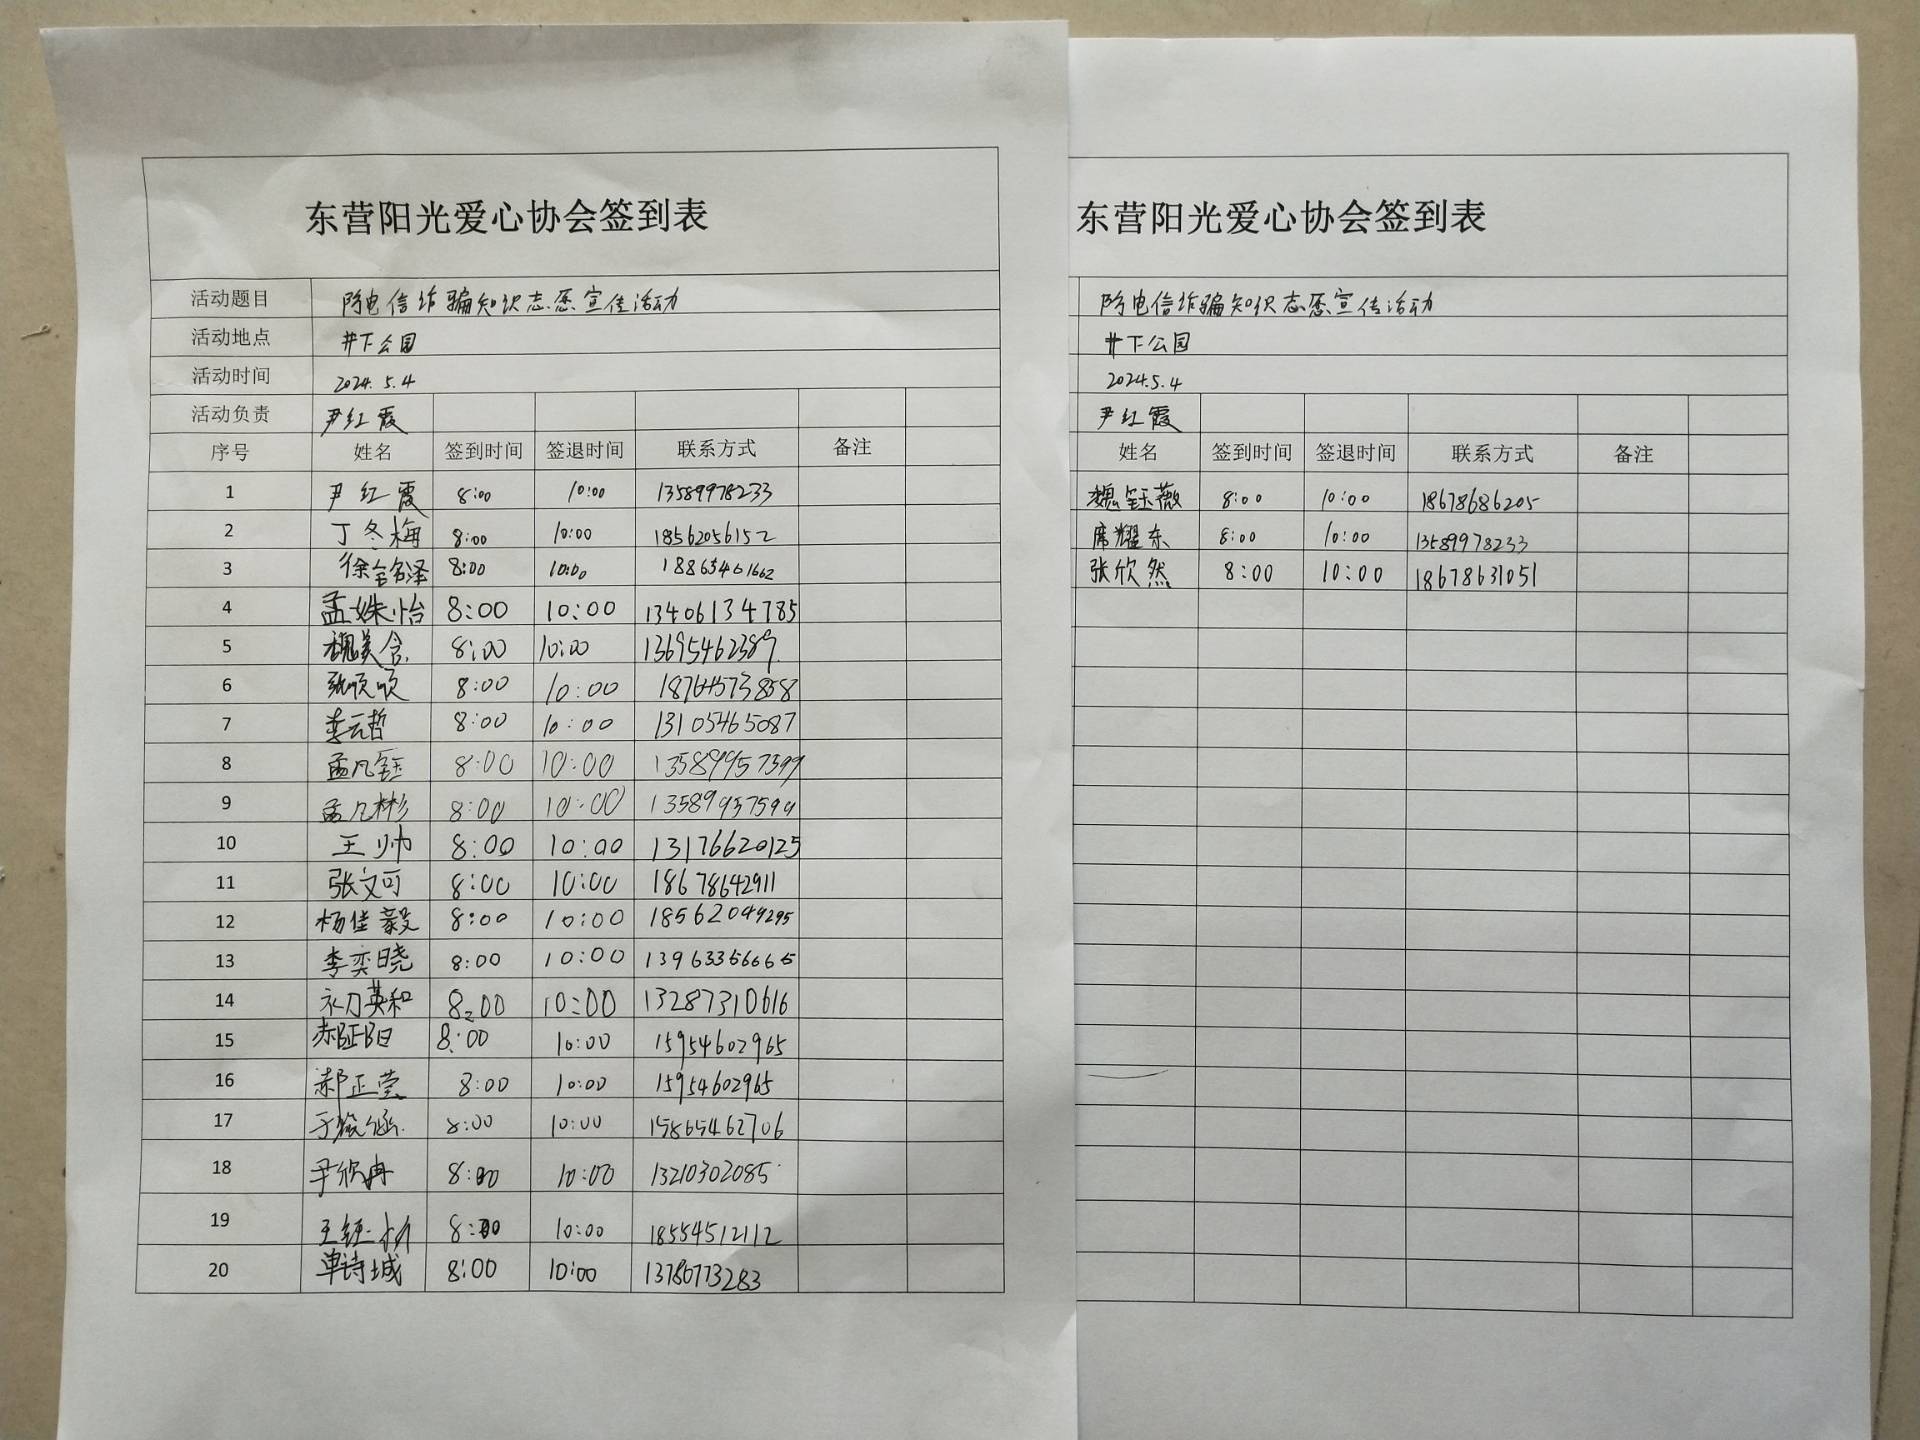 东营阳光爱心协会签到表
活动题目 防电信诈骗知识志愿宣传活动
活动地点 井下公园
活动时间 2024.5.4
活动负责 尹红霞
序号 姓名 签到时间 签退时间 联系方式 备注
1 尹红霞 8:00 10:00 13589978233
2 丁冬梅 8:00 10:00 18562056152
3 徐铭泽 8:00 10:00 18865461662
4 孟姝怡 8:00 10:00 13406134785
5 魏美含 8:00 10:00 13695462389
6 张顺顺 8:00 10:00 18764573858
7 李云哲 8:00 10:00 13105465087
8 孟凡钰 8:00 10:00 13589957599
9 孟凡彬 8:00 10:00 13589957599
10 王帅 8:00 10:00 13176620125
11 张文可 8:00 10:00 18678642911
12 杨佳毅 8:00 10:00 18562049295
13 李奕晓 8:00 10:00 13963356665
14 初英和 8:00 10:00 13287310616
15 郝正阳 8:00 10:00 15954602965
16 郝正莹 8:00 10:00 15954602965
17 8:00 10:00 15865462706
18 尹欣冉 8:00 10:00 13210302085
19 王 8:00 10:00 18554512112
20 单诗城 8:00 10:00 13780773283
东营阳光爱心协会签到表
防电信诈骗知识志愿宣传活动
井下公园
2024.5.4
尹红霞
姓名 签到时间 签退时间 联系方式 备注
魏钰薇 8:00 10:00 18678686205
席耀东 8:00 10:00 13589978233
张欣然 8:00 10:00 18678631051